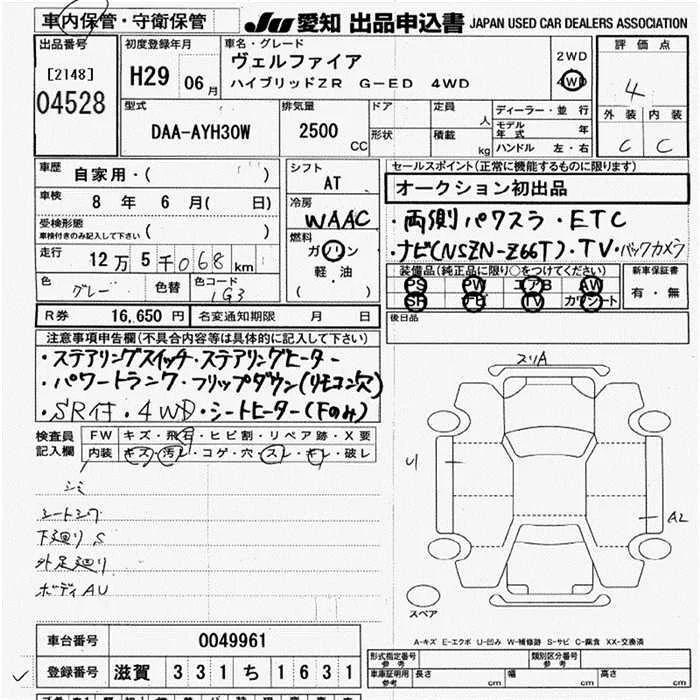 車内保管・守衛保管
JU 愛知 出品申込書 JAPAN USED CAR DEALERS ASSOCIATION
出品番号
[2148]
04528
初度登録年月
H29 06 月
車名・グレード
ヴェルファイア
ハイブリッドZR G-ED 4WD
2WD
4WD
評価点
4
外装 内装
C C
型式
DAA-AYH30W
排気量
2500 CC
ドア
形状
定員 人
積載 kg
ディーラー・並行
モデル年式 年
ハンドル 左・右
車歴
自家用・( )
車検
8 年 6 月( 日)
受検形態
車検付きのみ記入して下さい ( )
走行
12万5千068 km
色 グレー 色替 色コード 1G3
シフト
AT
冷房
WAAC
燃料
ガソリン
軽・油
( )
セールスポイント(正常に機能するものに限ります)
オークション初出品
・両側パワスラ・ETC
・ナビ(NSZN-Z66T)・TV・バックカメラ
装備品(純正品に限り○をつけてください)
PS PW エアB AW
SR ナビ TV カワシート
新車保証書
有・無
R券 16,650 円 名変通知期限 月 日
後日品
注意事項申告欄(不具合内容等は具体的に記入して下さい)
・ステアリングスイッチ・ステアリングヒーター
・パワートランク・フリップダウン(リモコン穴)
・SR付・4WD・シートヒーター(Fのみ)
検査員記入欄
FW キズ・飛石・ヒビ割・リペア跡・X要
内装 キズ・汚レ・コゲ・穴・スレ・キレ・破レ
シミ
シートシワ
下廻りS
外足廻り
ボディAU
スリA
U1
A2
スペア
A-キズ E-エクボ U-凹み W-補修跡 S-サビ C-腐食 XX-交換済
車台番号 0049961
登録番号 滋賀 331 ち 1631
形式指定番号 参考
類別区分番号 参考
車庫証明用 参考 長さ cm 幅 cm 高さ cm